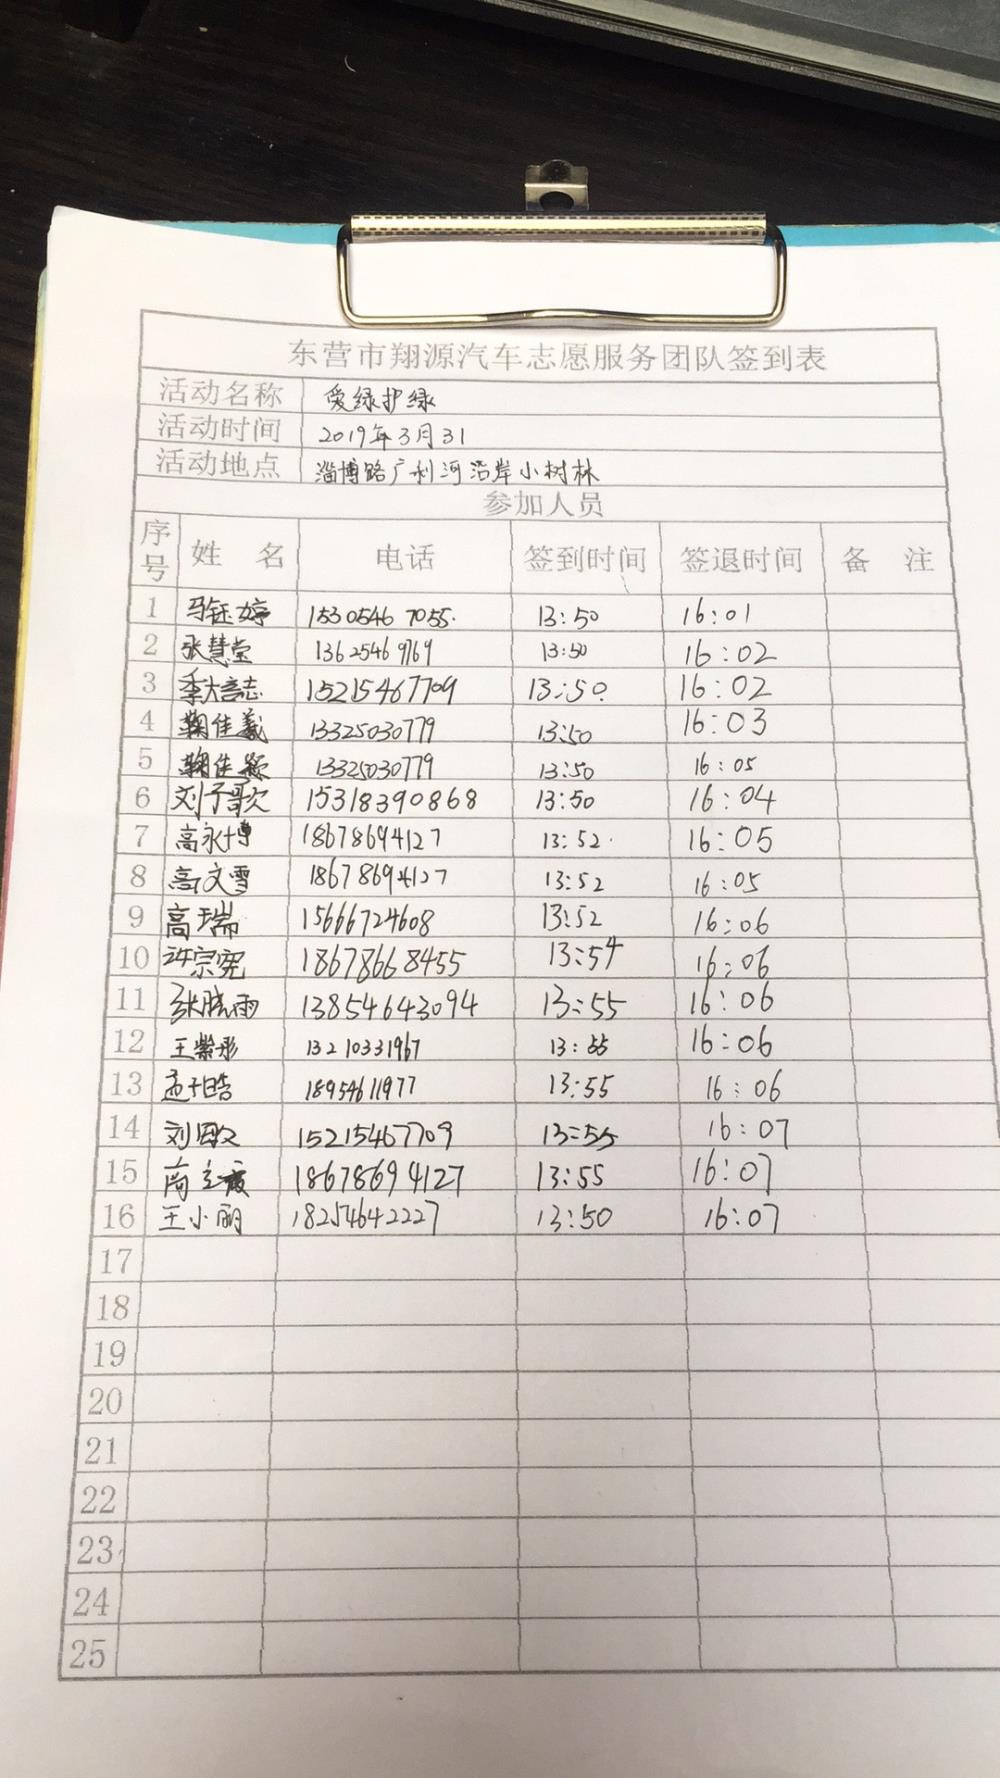 东营市翔源汽车志愿服务团队签到表
活动名称 爱绿护绿
活动时间 2019年3月31
活动地点 淄博路广利河沿岸小树林
参加人员
序号 姓 名 电话 签到时间 签退时间 备 注
1 马钰婷 15305467055. 13:50 16:01
2 张慧莹 13625469769 13:50 16:02
3 15215467709 13:50 16:02
4 鞠佳羲 13325030779 13:50 16:03
5 鞠佳颖 13325030779 13:50 16:05
6 刘予歌 15318390868 13:50 16:04
7 高永博 18678694127 13:52 16:05
8 高文雪 18678694127 13:52 16:05
9 高瑞 15666724608 13:52 16:06
10 许宗宪 18678668455 13:54 16:06
11 张晓雨 13854643094 13:55 16:06
12 王紫彤 13210331967 13:55 16:06
13 孟子皓 18954611977 13:55 16:06
14 刘 15215467709 13:55 16:07
15 18678694127 13:55 16:07
16 王小丽 18254642227 13:50 16:07
17
18
19
20
21
22
23
24
25